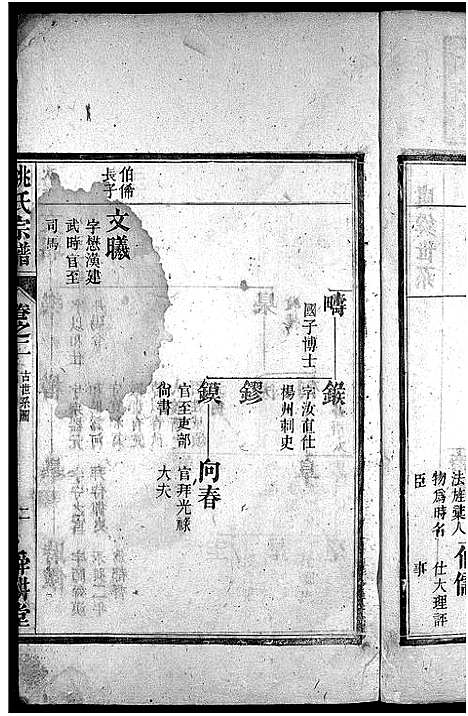 法旌獎人
物爲時名
臣
伯儒
仕大理評
事
疇
國子博士
鍭
字汝直仕
楊州刺史
鏐
鏌
官至吏部
尙書
向春
官拜光祿
大夫
伯俙
長子
文曦
字懋漢建
武時官至
司馬
姚氏宗譜
卷之二
古世系圖
二
舜祺堂